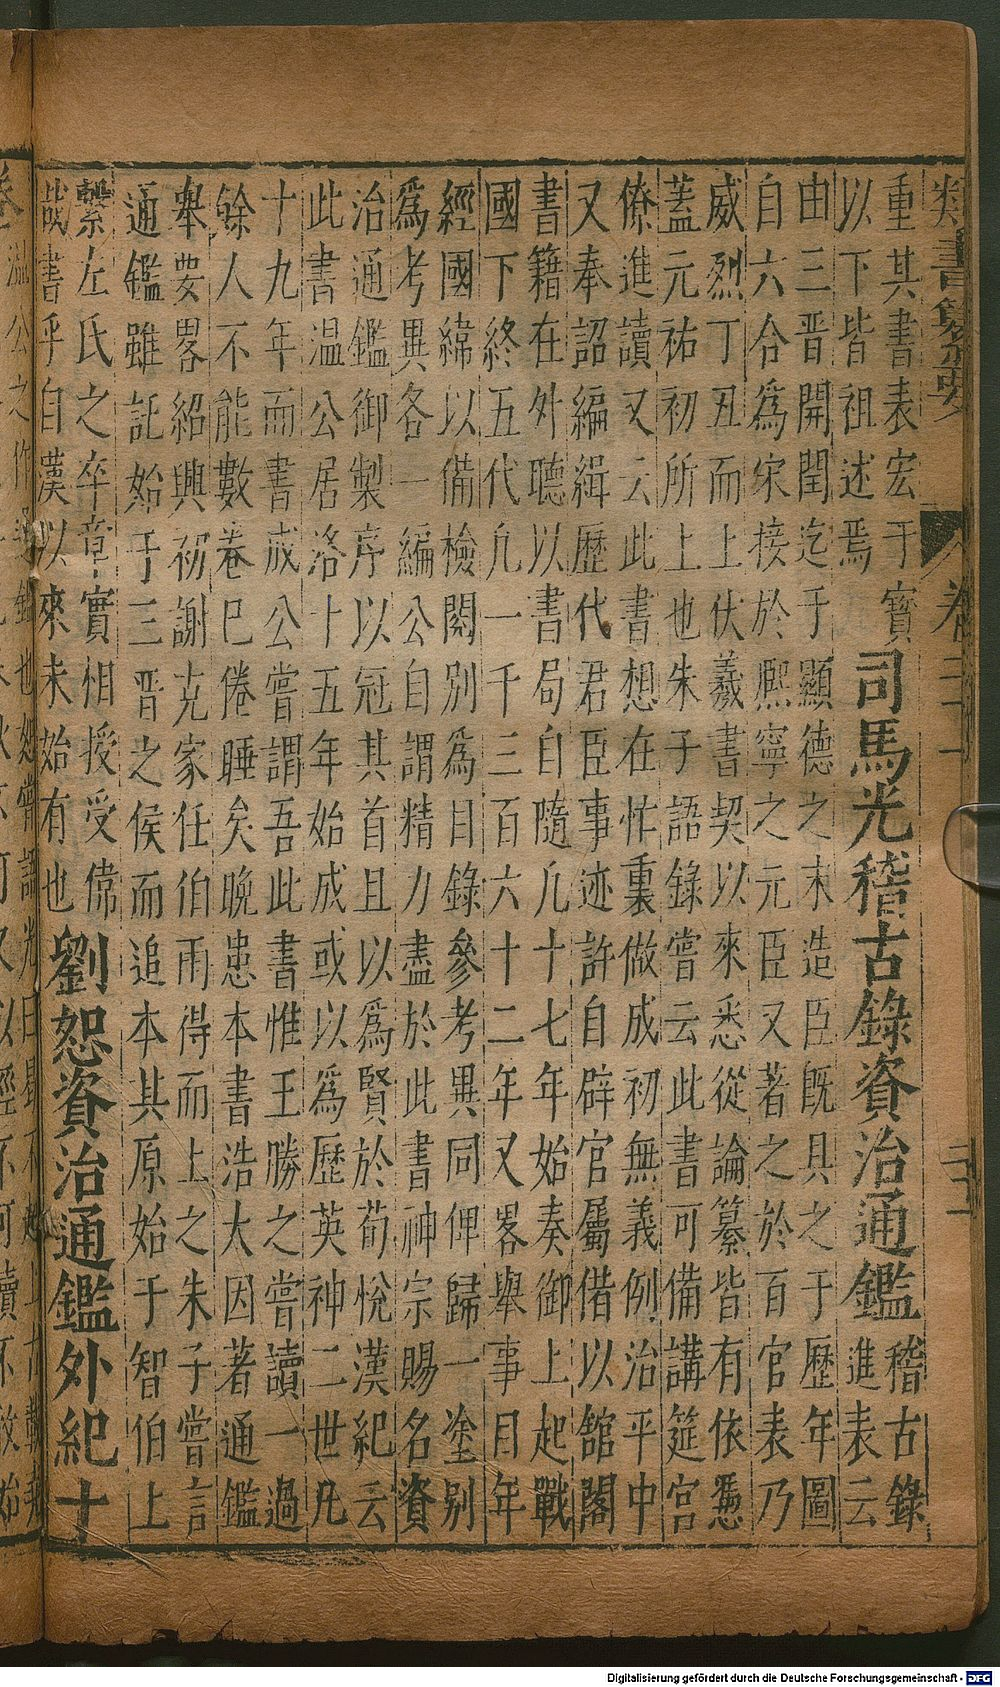 類書纂要
卷二十一
重其書表宏于寳
以下皆祖述焉
司馬光稽古錄資治通鑑
稽古錄
進表云
由三晋開閏迄于顯德之末造臣旣具之于歷年圖
自六合爲宋接於熈寧之元臣又著之於百官表乃
威烈丁丑而上伏羲書契以來悉從論纂皆有依慿
蓋元祐初所上也朱子語錄嘗云此書可備講筵宫
僚進讀又云此書想在忙裏做成初無義例治平中
又奉詔編緝歷代君臣事迹許自辟官屬借以舘閣
書籍在外聽以書局自隨凢十七年始奏御上起戰
國下終五代凢一千三百六十二年又畧舉事目年
經國緯以備檢閱别爲目錄參考異同俾歸一塗别
爲考異各一編公自謂精力盡於此書神宗賜名資
治通鑑御製序以冠其首且以爲賢於荀悅漢紀云
此書温公居洛十五年始成或以爲歷英神二世凡
十九年而書成公嘗謂吾此書惟王勝之嘗讀一過
餘人不能數卷巳倦睡矣晚患本書浩大因著通鑑
舉要畧紹興初謝克家任伯雨得而上之朱子嘗言
通鑑雖託始于三晋之侯而追本其原始于智伯上
繫左氏之卒章實相授受偉
哉書乎自漢以來未始有也
劉恕資治通鑑外紀十
Digitalisierung gefördert durch die Deutsche Forschungsgemeinschaft - DFG